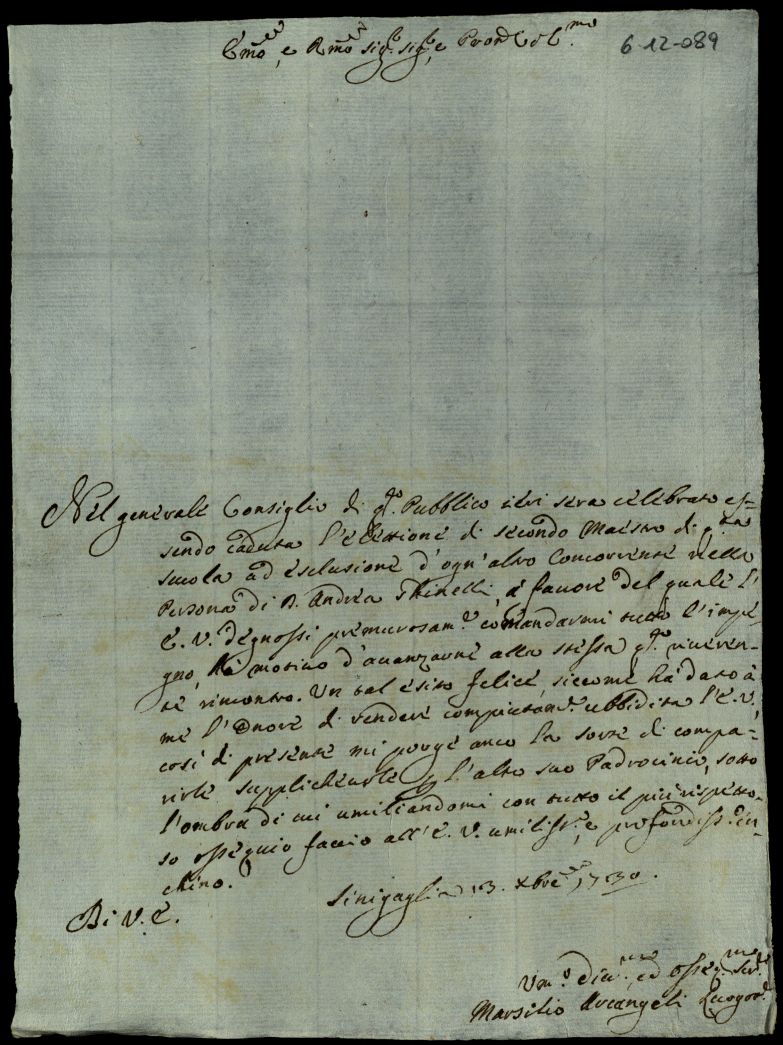 Emo, e Rmo sig.r sig.r, e Pron Col.mo
6-12-089
Nel generale Consiglio di q.to Pubblico ieri sera celebrato es=
sendo caduta l'elettione di secondo Maestro di q.ta
scuola ad esclusione d'ogn'altro Concorrente nella
Persona di D. Andrea Thinelli, à favore del quale l'
E. V. degnossi premurosam.e comandarmi tutto l'impe=
gno, hò motivo d'avanzarne alla stessa q.to riveren=
te rincontro. Un tal esito felice, siccome hà dato à
me l'onore di rendere compiutam.e ubbidita l'E. V.
così di presente mi porge anco la sorte di compa=
rirle supplichevole p l'alto suo Padrocinio, sotto
l'ombra di cui umiliandomi con tutto il più rispetto=
so ossequio faccio all'E. V. umiliss.o, e profondiss.o in=
chino.
Sinigaglia 13. Xbre 1730.
Di V. E.
Um.o Diu.mo, ed osseq.mo Ser.re
Marsilio Arcangeli Luogot.e